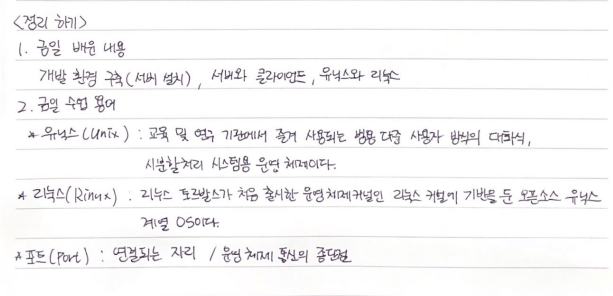 <정리 하기>
1. 금일 배운 내용
개발 환경 구축(서버 설치), 서버와 클라이언트, 유닉스와 리눅스
2. 금일 수업 용어
* 유닉스(Unix) : 교육 및 연구 기관에서 즐겨 사용되는 범용 다중 사용자 방식의 대화식,
시분할처리 시스템용 운영 체제이다.
* 리눅스(Rinux) : 리누스 토르발스가 처음 출시한 운영체제커널인 리눅스 커널에 기반을 둔 오픈소스 유닉스
계열 OS이다.
* 포트(Port) : 연결되는 자리 / 운영 체제 통신의 종단점